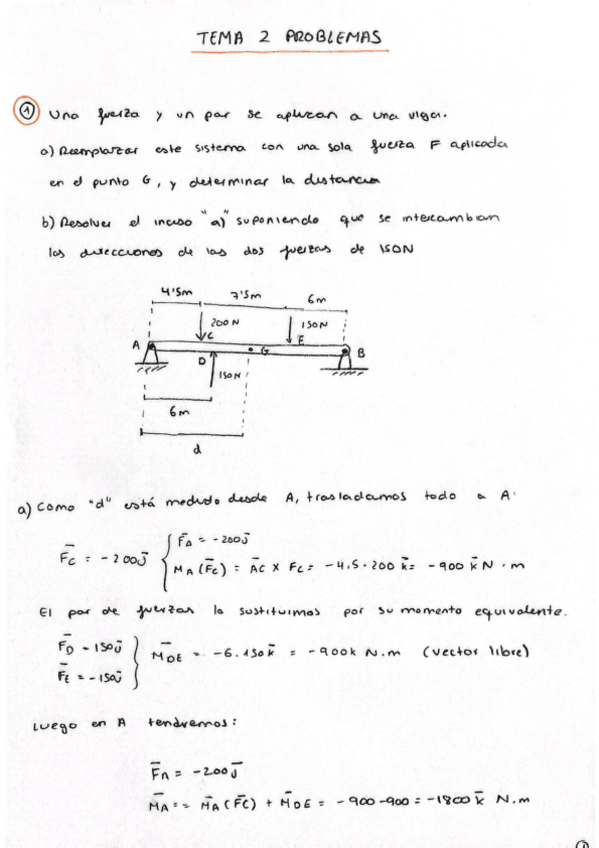 TEMA 2 PROBLEMAS
1 Una fuerza y un par se aplican a una viga.
a) Reemplazar este sistema con una sola fuerza F aplicada
en el punto G, y determinar la distancia
b) Resolver el inciso "a)" suponiendo que se intercambian
las direcciones de las dos fuerzas de 150N
4'5m 7'5m 6m
200N 150N
A C E
D G B
150N
6m
d
a) Como "d" está medido desde A, trasladamos todo a A:
F̄c = -200J̄ { F̄A = -200J̄
MA (F̄c) = ĀC x Fc = -4,5·200 k̄ = -900 k̄ N·m
El par de fuerzas lo sustituimos por su momento equivalente.
F̄D = 150J̄
F̄E = -150J̄ } M̄DE = -6·150k̄ = -900k N.m (vector libre)
Luego en A tendremos:
F̄A = -200J̄
M̄A = = M̄A (F̄C) + M̄DE = -900-900 = -1800 k̄ N.m